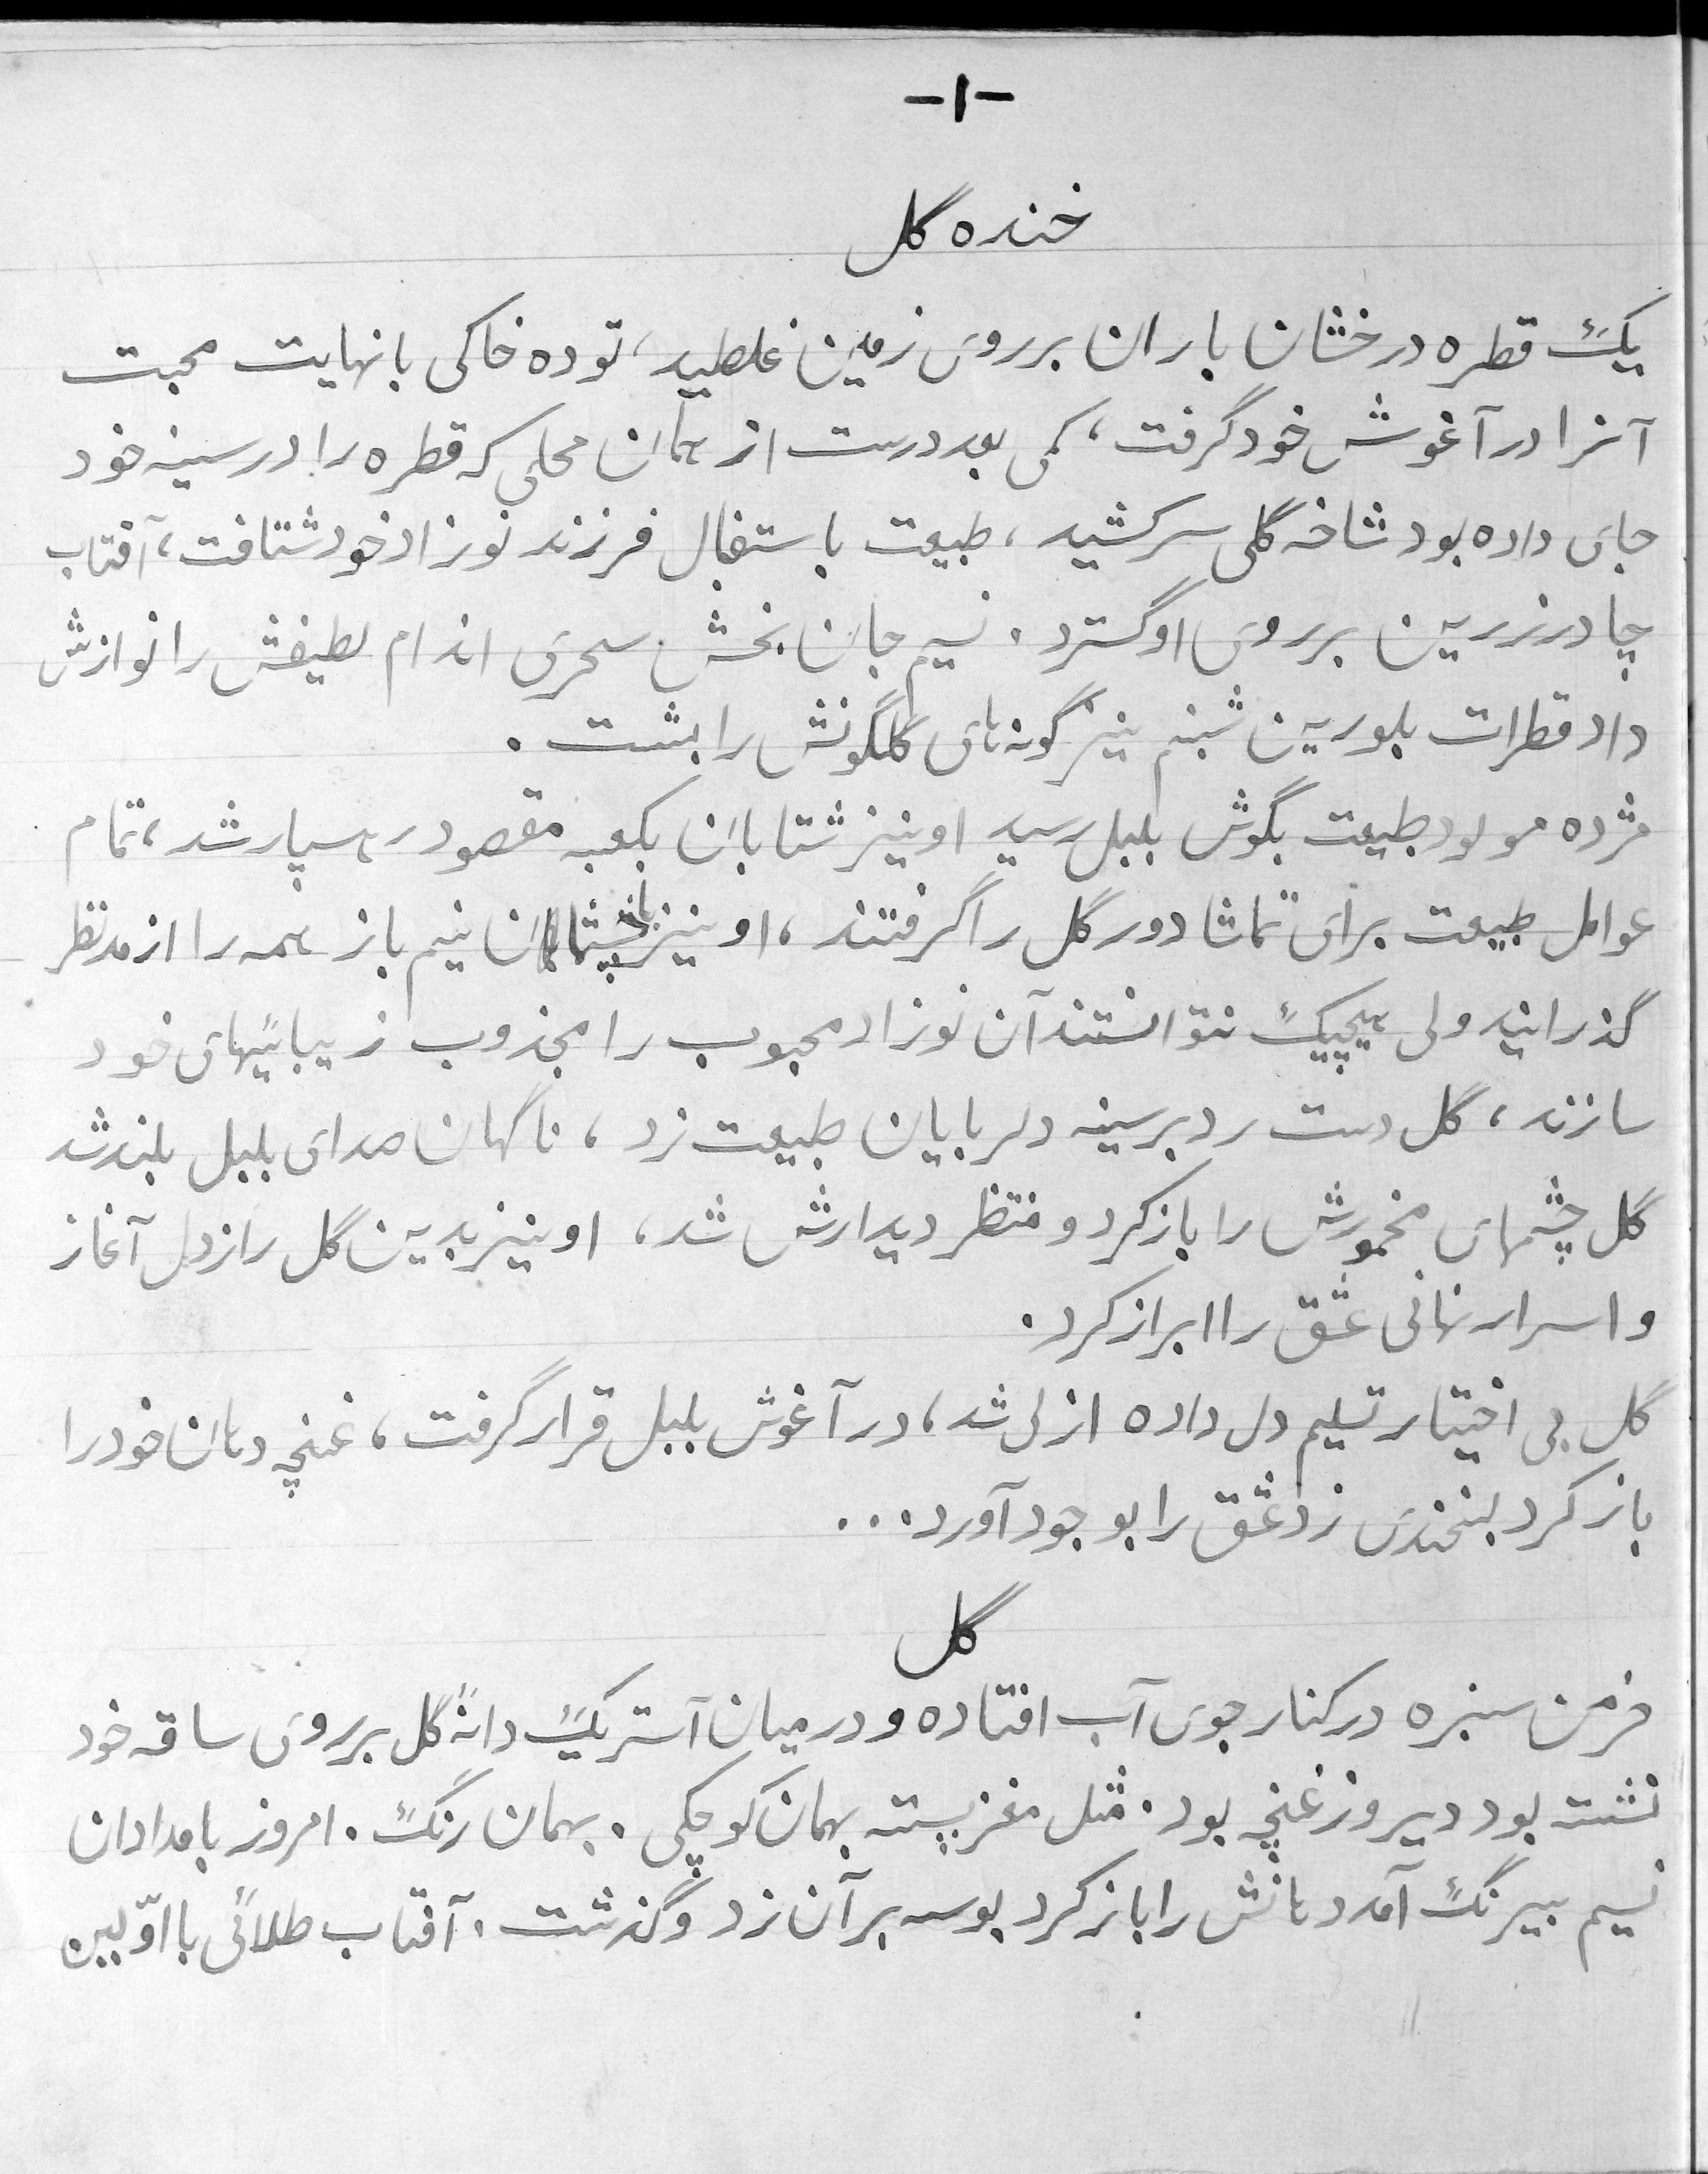 -۱-
خنده گل
یک قطره درخشان باران بر روی زمین غلطید، توده خاکی با نهایت محبت
آنرا در آغوش خود گرفت، کمی بعد درست از همان محلی که قطره را در سینه خود
جای داده بود شاخه گلی سر کشید، طبیعت باستقبال فرزند نوزاد خود شتافت، آفتاب
چادر زرین بر روی او گسترد. نسیم جان بخش سحری اندام لطیفش را نوازش
داد قطرات بلورین شبنم نیز گونه های گلگونش را بشست.
مژده مولود طبیعت بگوش بلبل رسید او نیز شتابان بکعبه مقصود رهسپار شد، تمام
عوامل طبیعت برای تماشا دور گل را گرفتند، او نیز با چشمان نیم باز همه را از مد نظر
گذرانید ولی هیچیک نتوانستند آن نوزاد محبوب را مجذوب زیبائیهای خود
سازند، گل دست رد بر سینه دلربایان طبیعت زد، ناگهان صدای بلبل بلند شد
گل چشمهای مخمورش را باز کرد و منتظر دیدارش شد، او نیز بدین گل راز دل آغاز
و اسرار نهانی عشق را ابراز کرد.
گل بی اختیار تسلیم دل داده ازلی شد، در آغوش بلبل قرار گرفت، غنچه دهان خود را
باز کرد لبخندی زد عشق را بوجود آورد...
گل
خرمن سبزه در کنار جوی آب افتاده و در میان آستر یک دانهٔ گل بر روی ساقه خود
نشسته بود دیروز غنچه بود. مثل مغز پسته بهمان کوچکی. بهمان رنگ. امروز بامدادان
نسیم بیرنگ آمد دهانش را باز کرد بوسه بر آن زد و گذشت. آفتاب طلائی با اوّلین